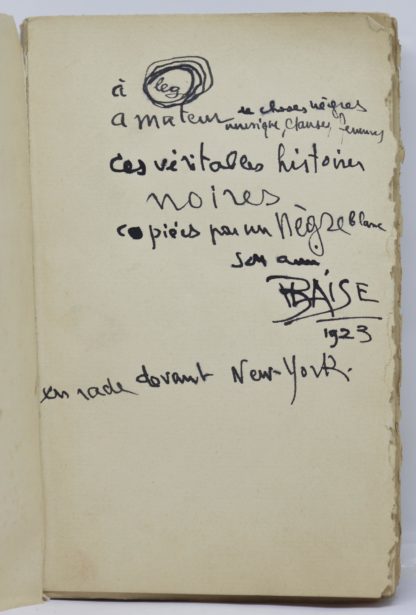 à leg
amateur de choses nègres
musique, danses, femmes
ces véritables histoires
noires
copiées par un Nègre blanc
son ami,
BLAISE
1923
en rade devant New-York.